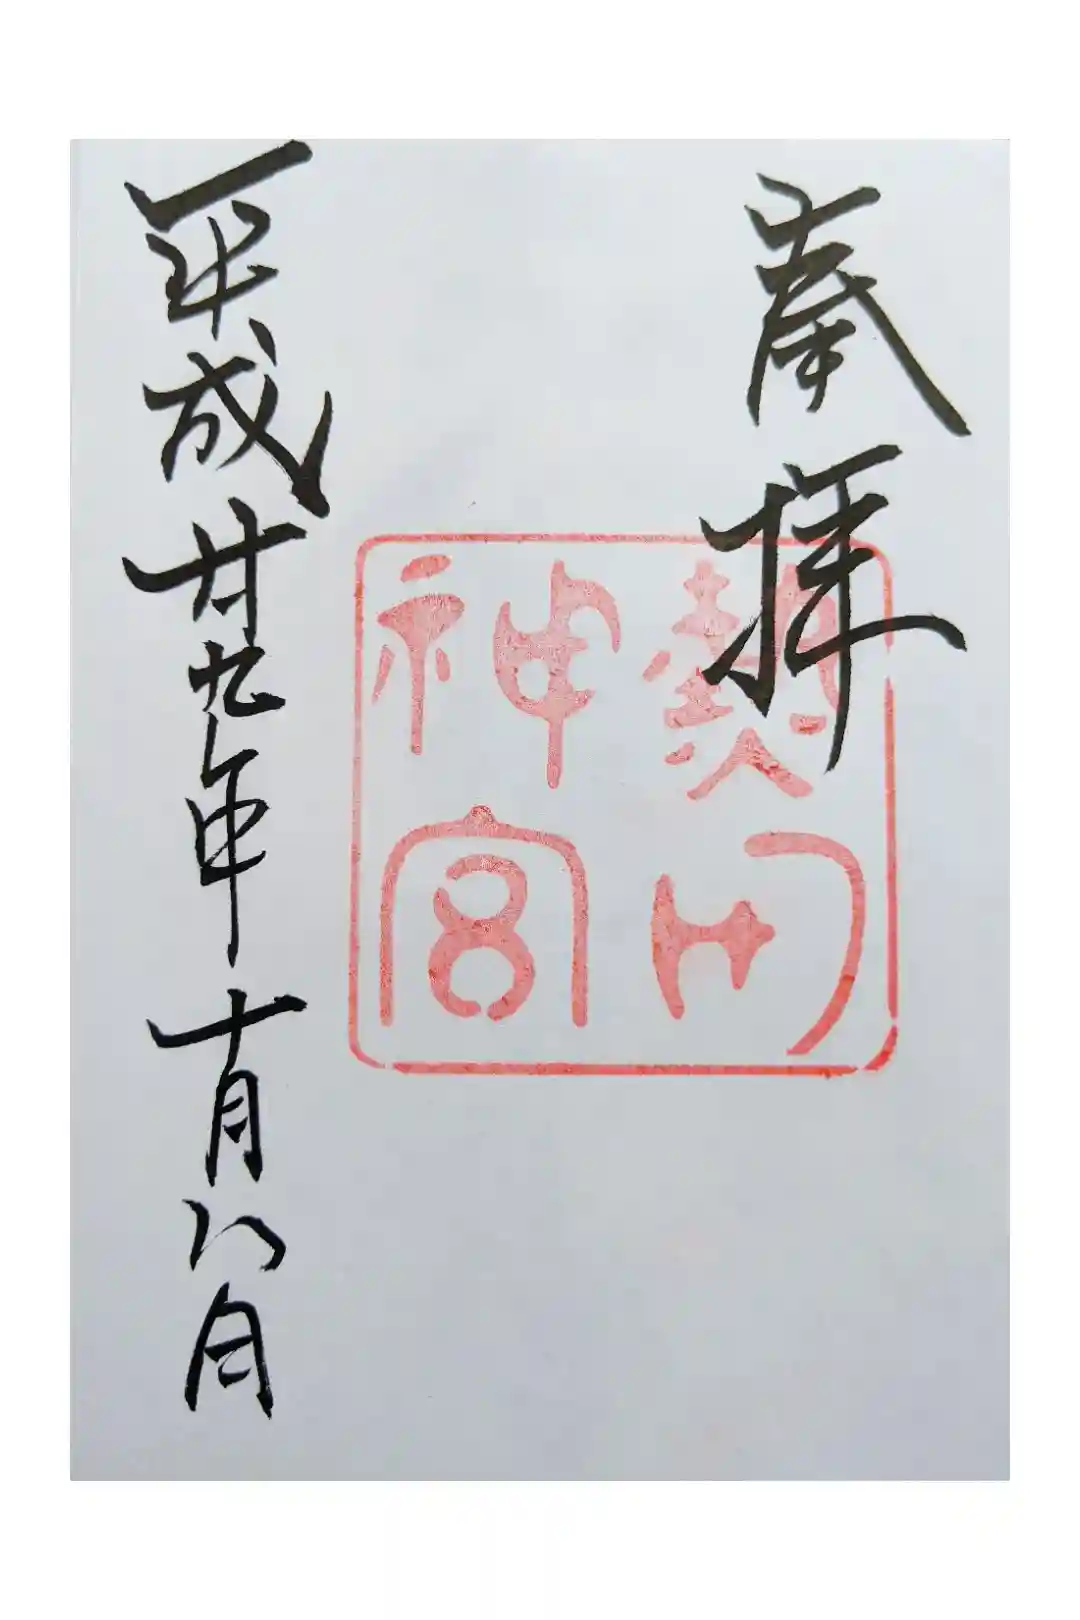 奉拝
熱田神宮
平成廿九年十月八日